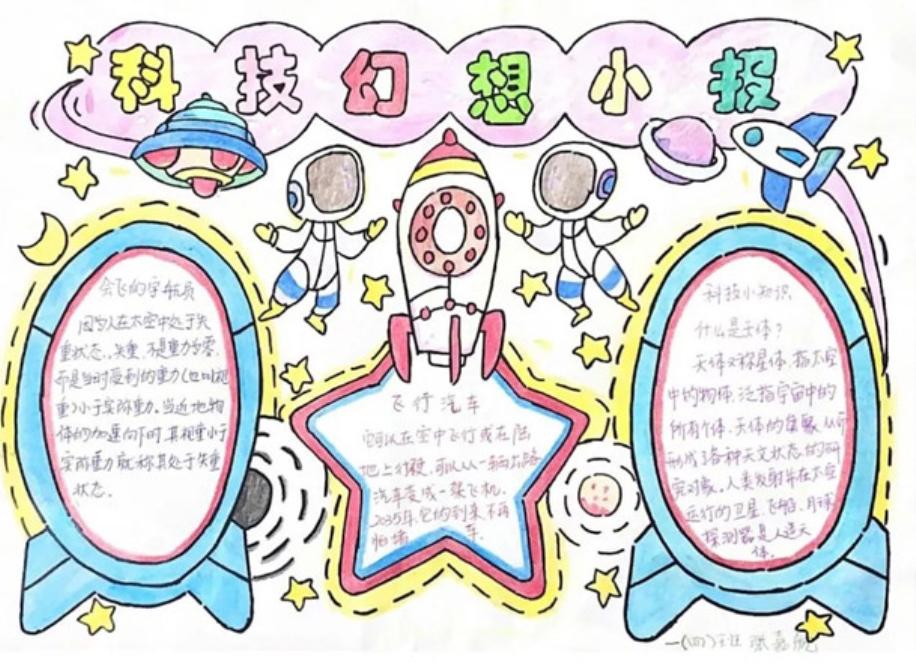 科技幻想小报
会飞的宇航员
因为人在太空中处于失
重状态。失重,不是重力为零,
而是当时受到的重力(也叫视
重)小于实际重力。当近地物
体的加速向下时,其视重小于
实际重力就称其处于失重
状态。
飞行汽车
它可以在空中飞行或在陆
地上行驶,可以从一辆公路
汽车变成一架飞机。
2035年,它的到来不再
怕堵车。
科技小知识
什么是天体?
天体又称星体,指太空
中的物体,泛指宇宙中的
所有个体。天体的集聚,从而
形成了各种天文状态的研
究对象。人类发射并在太空
运行的卫星、飞船、月球
探测器是人造天
体。
一(四)班 张嘉